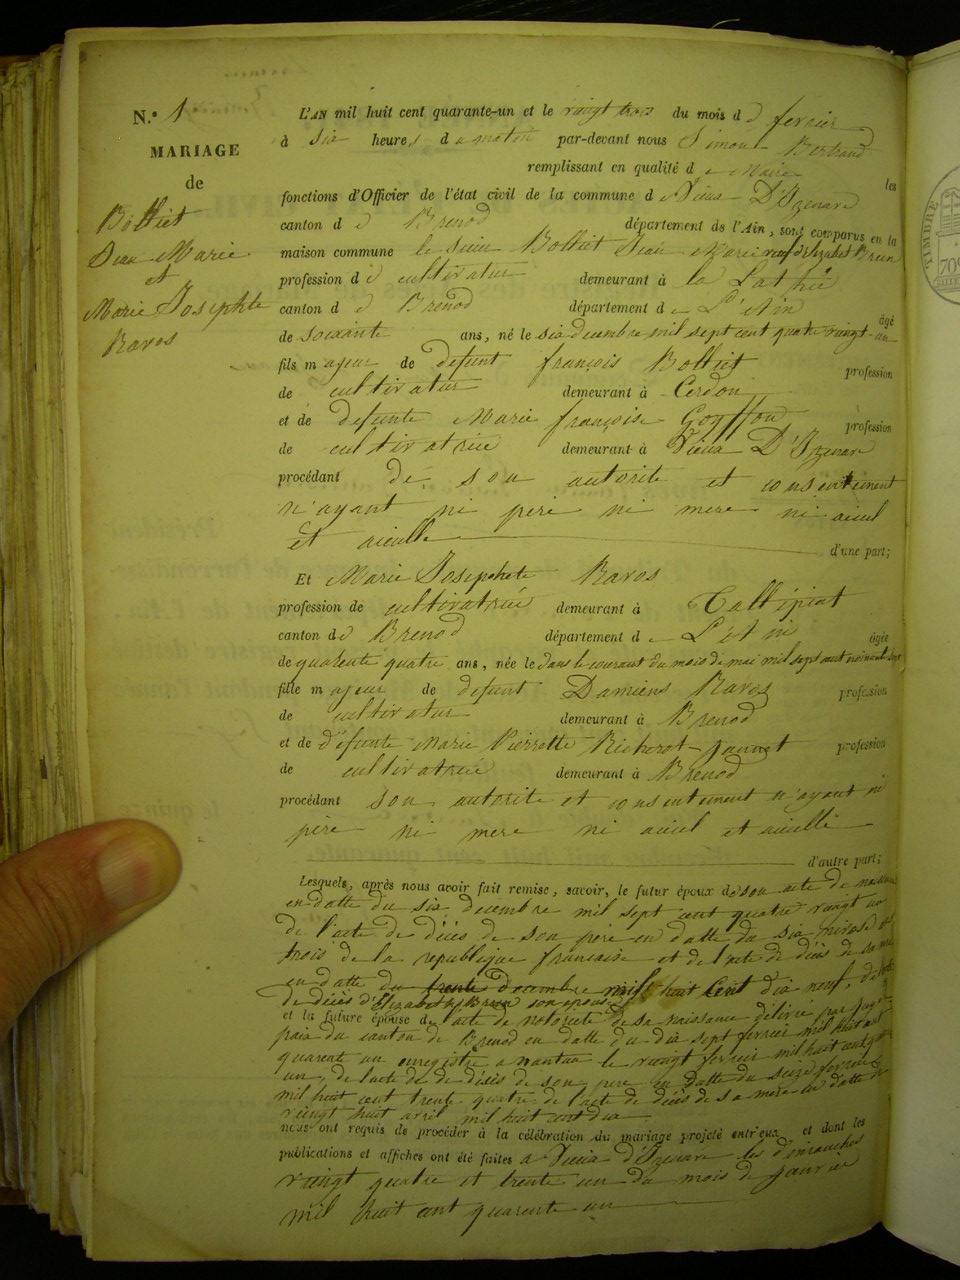 N.º 1
MARIAGE
de
Bolliet
Jean Marie
et
Marie Josephte
Ravos
L'AN mil huit cent quarante-un et le vingt trois du mois d e fevrier
à six heures du matin par-devant nous Simon Bertrand
remplissant en qualité de Maire les
fonctions d'Officier de l'état civil de la commune d Vieux D'Izenave
canton de Brenod département de l'Ain, sont comparus en la
maison commune le sieur Bolliet Jean Marie veuf d'Elizabet Brun
profession de cultivatur demeurant à la
canton de Brenod département de L'Ain âgé
de soixante ans, né le six decembre mil sept cent quatre vingt-un
fils majeur de defunt françois Bolliet profession
de cultivatur demeurant à Cerdon
et de defunte Marie françoise Goyffon profession
de cultivatrice demeurant à Vieux D'Izenave
procédant de son autorite et consentement
n'ayant ni pere ni mere ni aieul
et aieulle d'une part;
Et Marie Josephete Ravos
profession de cultivatrice demeurant à Tallipiat
canton de Brenod département de L'Ain âgée
de quarente quatre ans, née le dans le courant du mois de mai mil sept cent nonante sept
fille majeur de defunt Damiens Ravos profession
de cultivatur demeurant à Brenod
et de défunte Marie Pierrette Richerot-Jannet profession
de cultivatrice demeurant à Brenod
procédant son autorite et consentement n'ayant ni
père ni mere ni aieul et aieulle
d'autre part;
Lesquels, après nous avoir fait remise, savoir, le futur époux de son acte de naissance
en datte du six decembre mil sept cent quatre vingt un
de l'acte de décès de son père en datte du six nivose an
trois de la republique francaise et de l'acte de décès de sa mere
en datte du trente decembre mil huit cent dix neuf, de l'acte
de décès d'Elizabeth Brun son épouse
et la future épouse de l'acte de notoriete de sa naissance délivré par juge de
paix du canton de Brenod en datte du dix sept fevrier mil huit cent
quarente un enregistré a nantua le vingt fevrier mil huit cent quarente
un, de l'acte de décès de son pere en datte du seize fevrier
mil huit cent trente quatre de l'acte de décès de sa mere en datte du
vingt huit avril mil huit cent dix
nous ont requis de procéder à la célébration du mariage projeté entr'eux et dont les
publications et affiches ont été faites a Vieux d'Izenave les dimanches
vingt quatre et trente un du mois de janvier
mil huit cent quarente un
TIMBRE